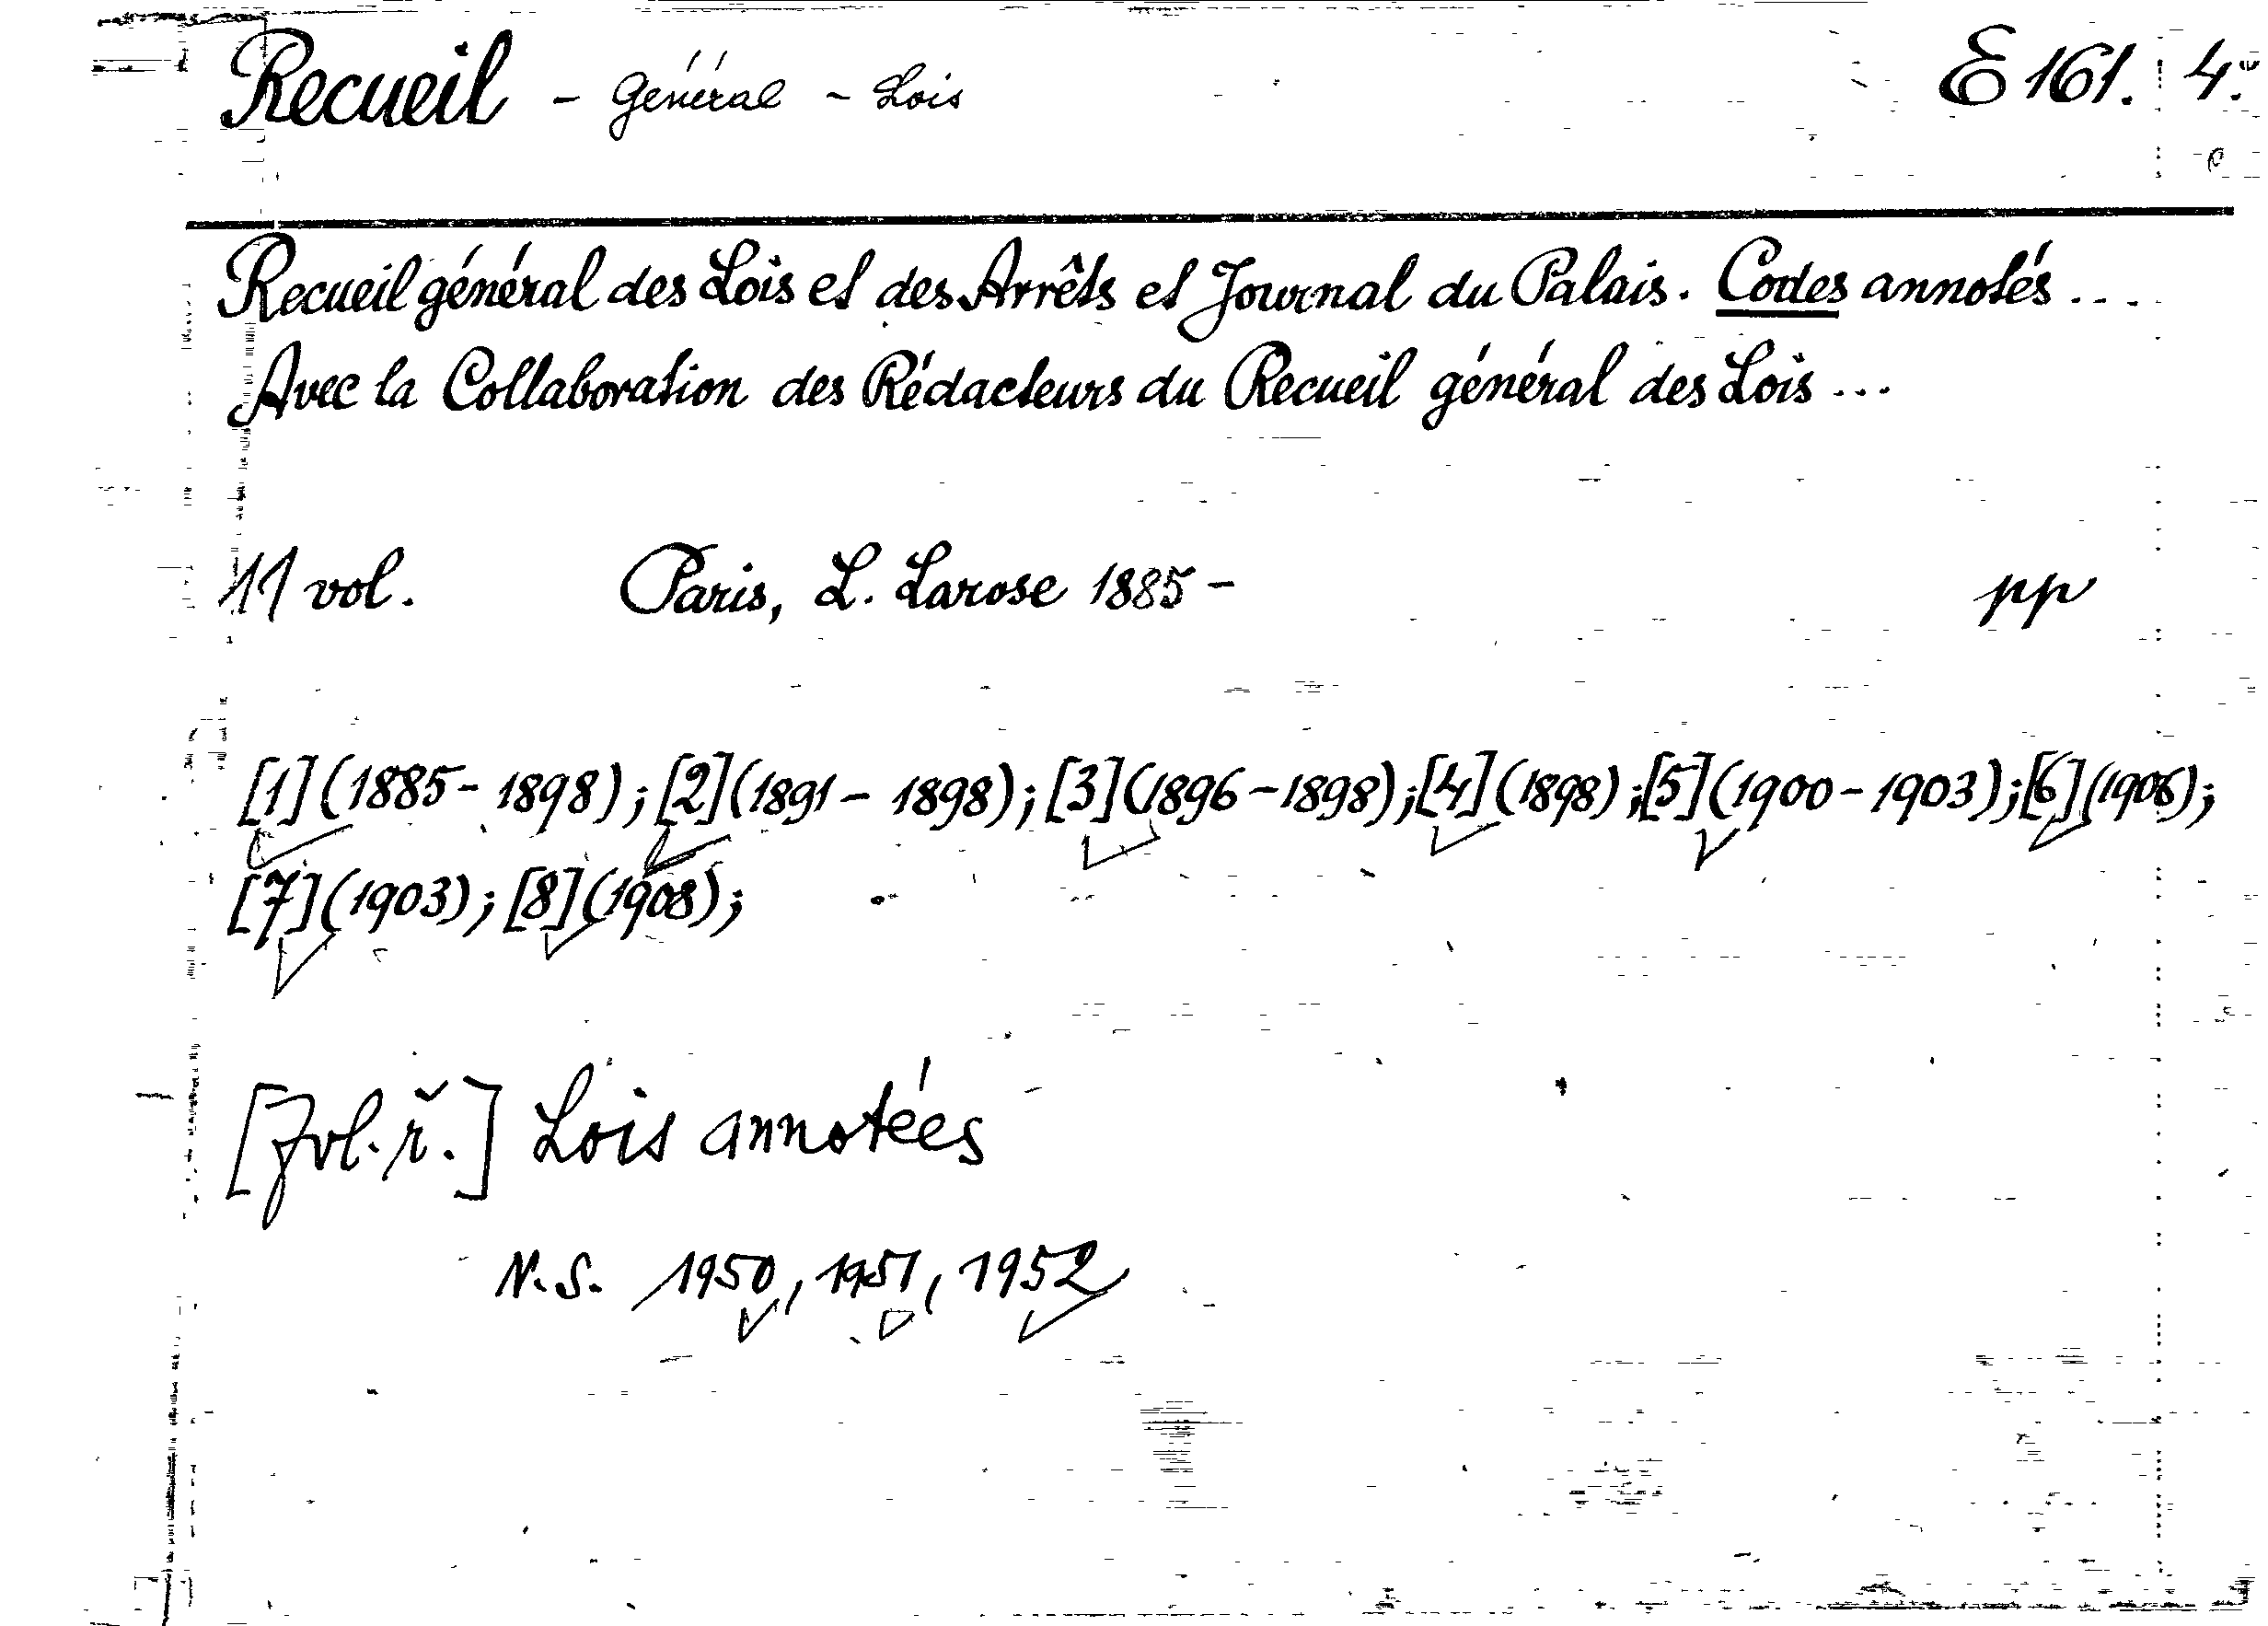 Recueil - Général - Lois E 161. 4.
Recueil général des Lois et des Arrêts et Journal du Palais. Codes annotés ...
Avec la Collaboration des Rédacteurs du Recueil général des Lois ...
11 vol. Paris, L. Larose 1885 - pp
[1] (1885 - 1898); [2] (1891 - 1898); [3] (1896 - 1898); [4] (1898); [5] (1900 - 1903); [6] (1906);
[7] (1903); [8] (1908);
[Zvl. ř.] Lois annotées
N.S. 1950, 1951, 1952